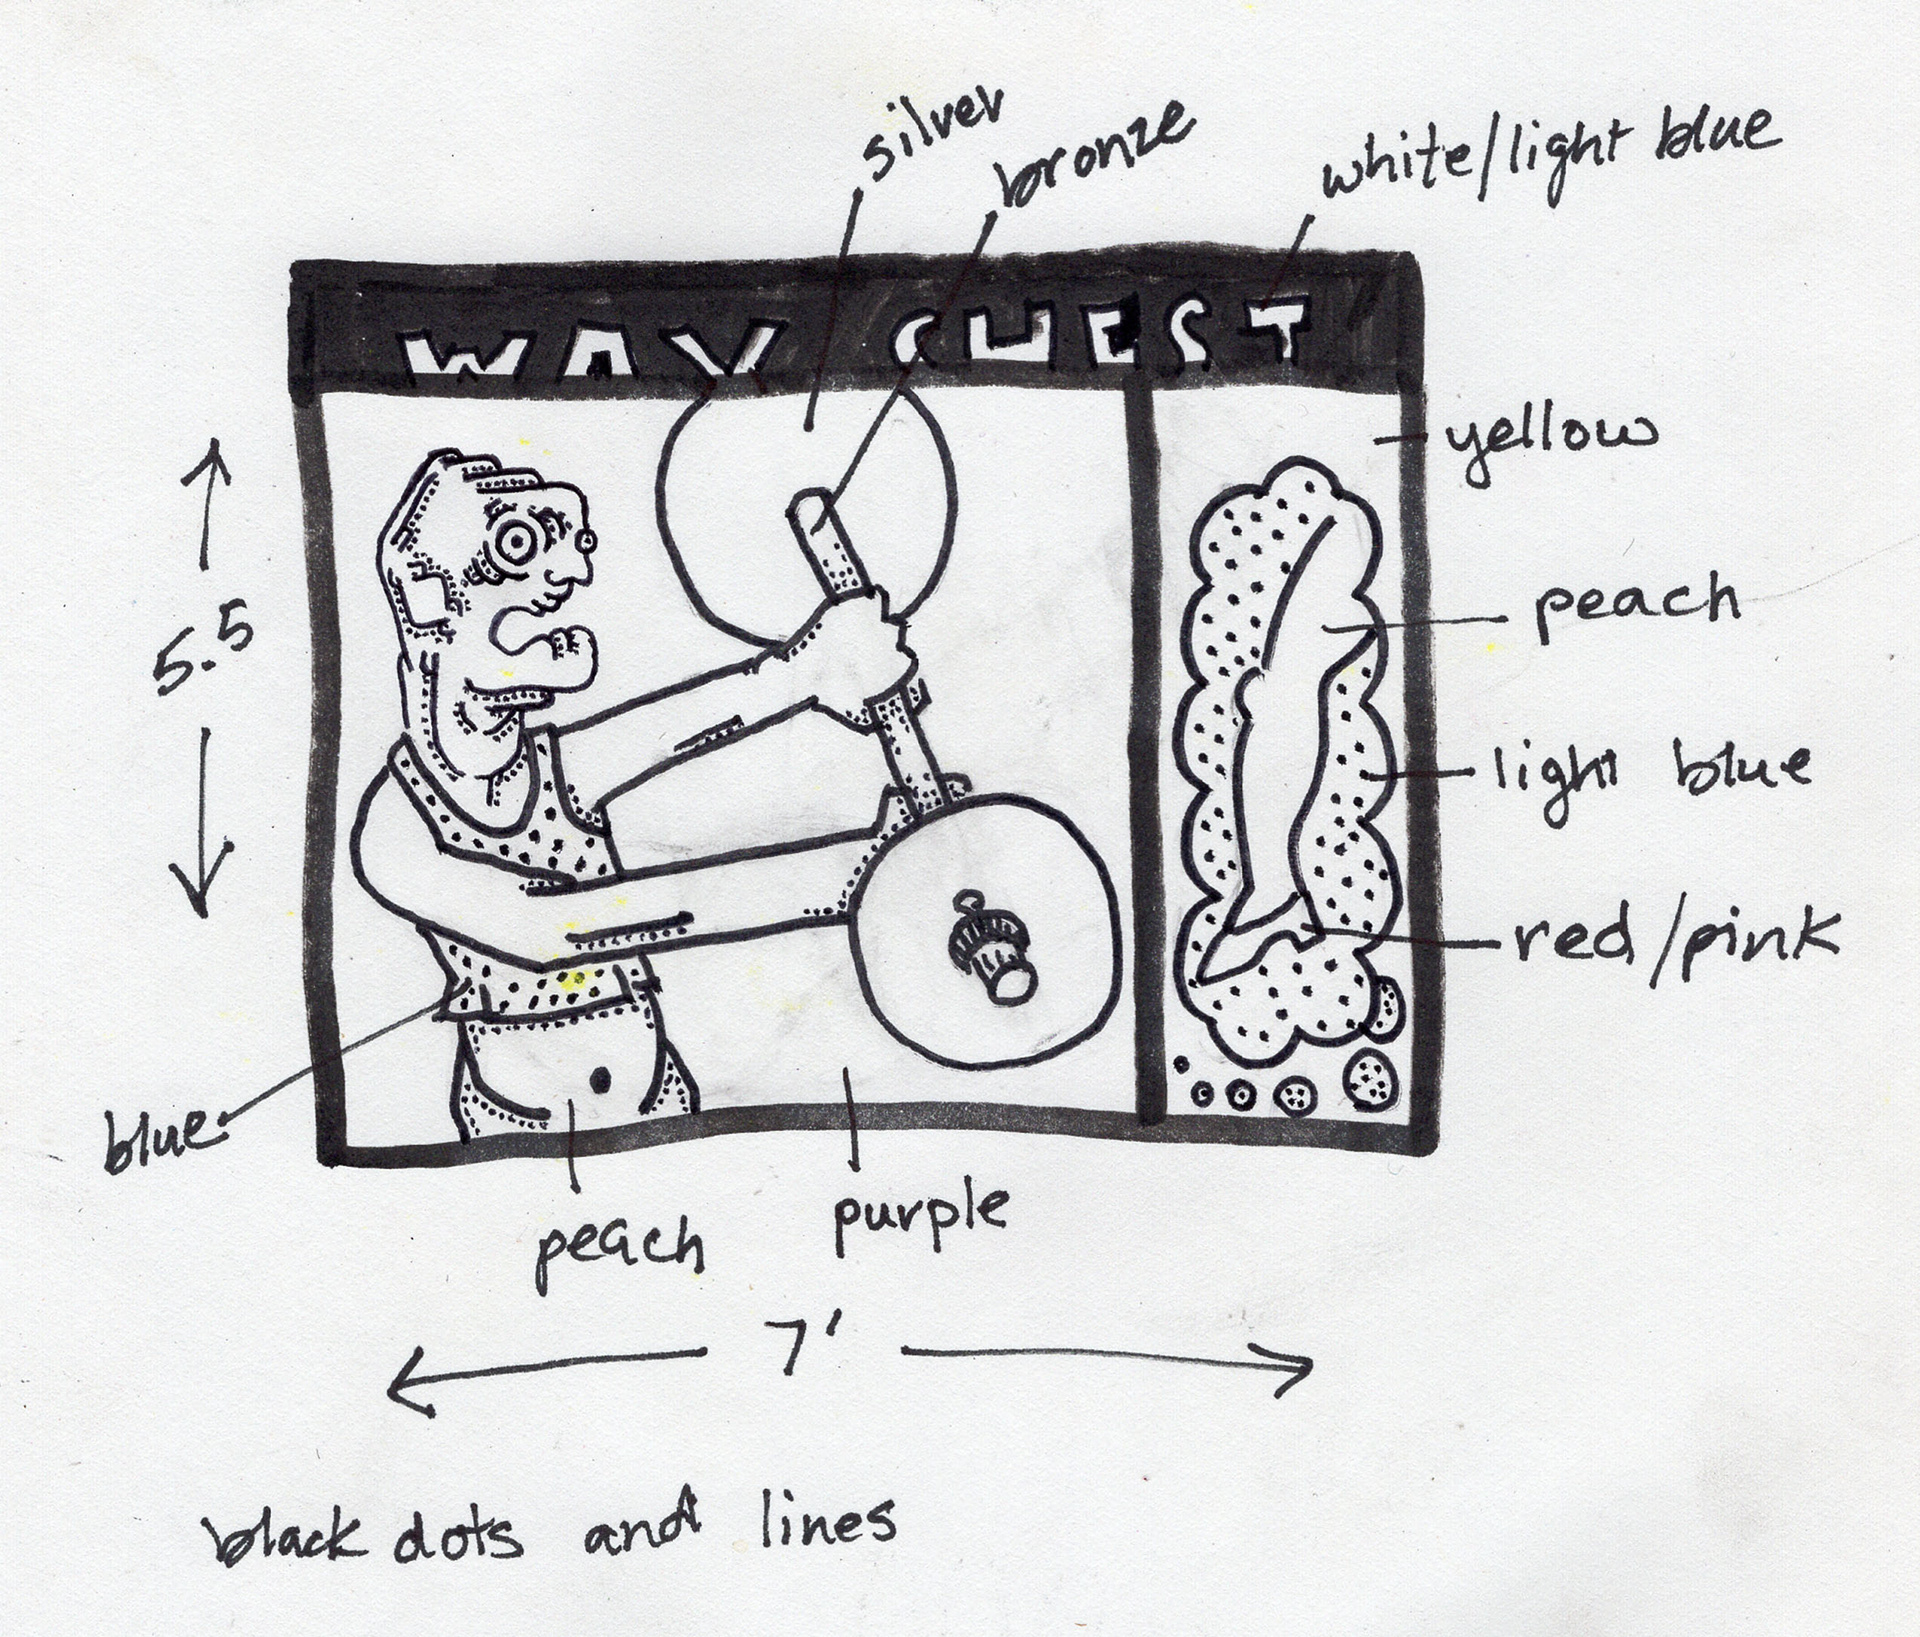 silver
bronze
white/light blue
WAY CHEST
yellow
5.5
peach
light blue
red/pink
blue
peach
purple
7'
black dots and lines